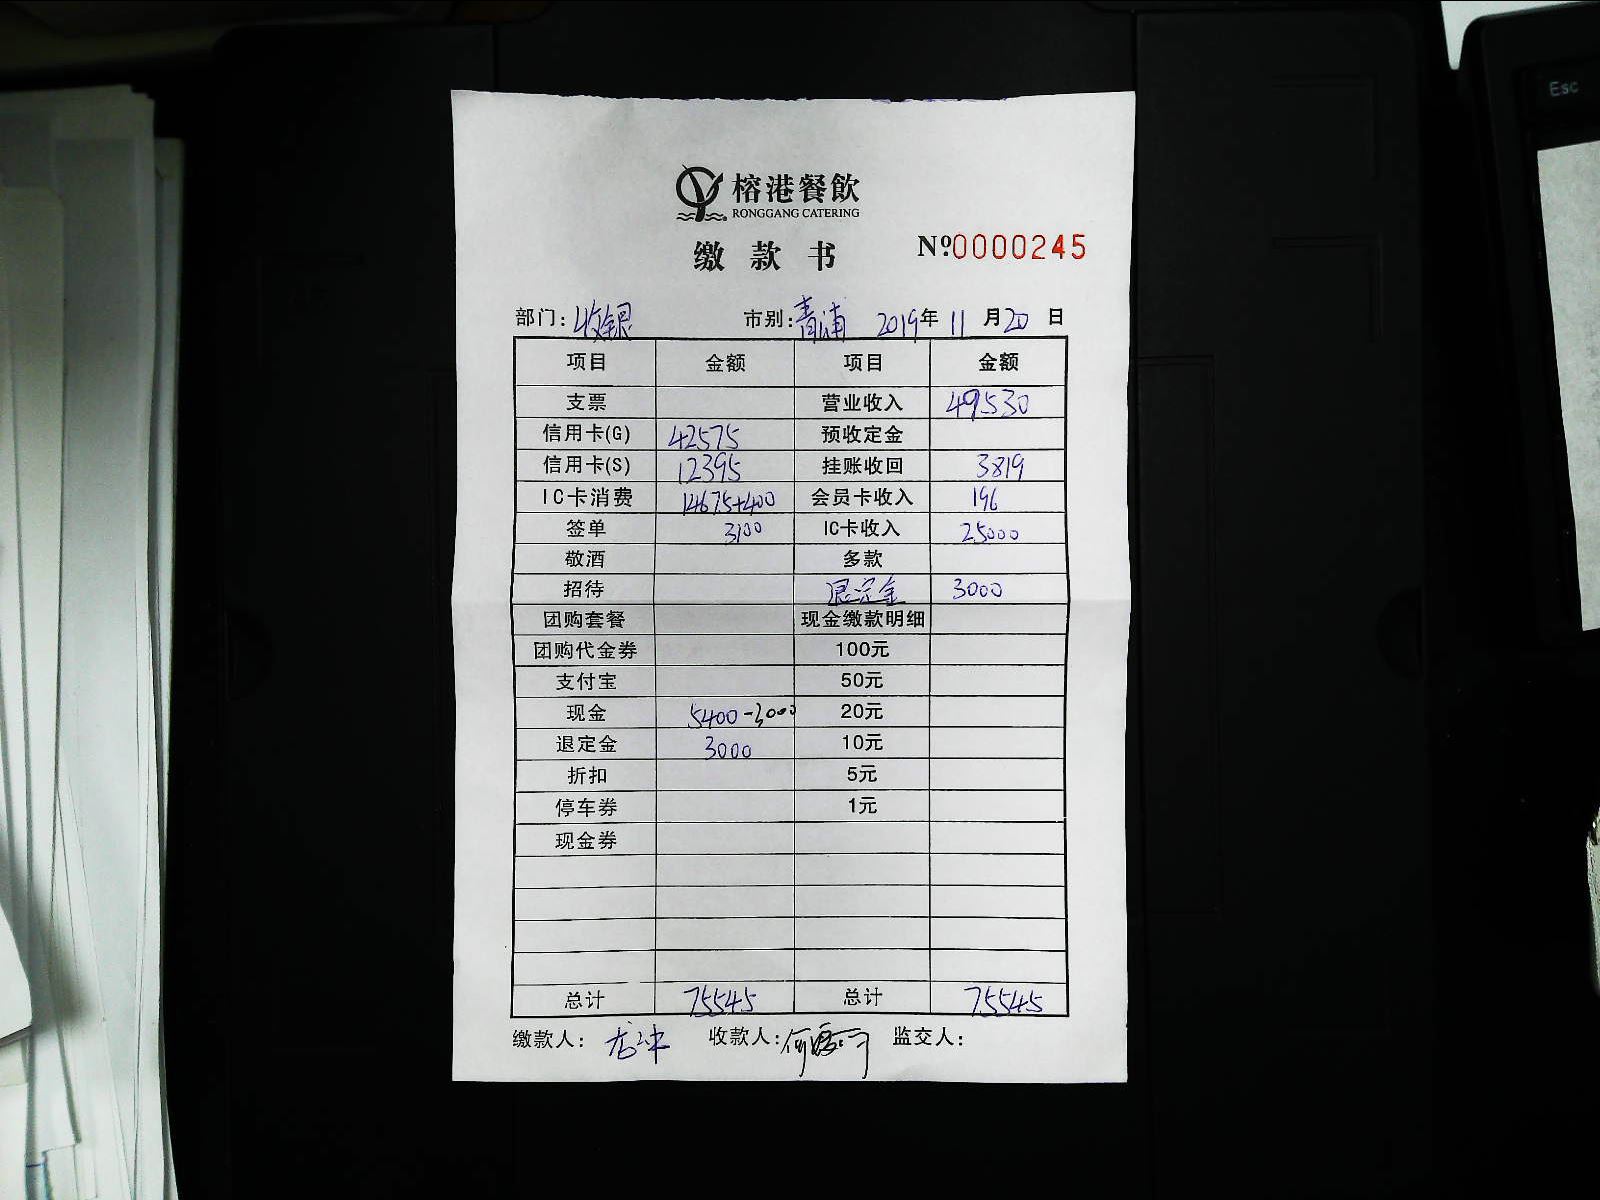 榕港餐飲
RONGGANG CATERING
缴款书 №0000245
部门：收银 市别：青浦 2019年11月20日
项目 金额 项目 金额
支票 营业收入 49530
信用卡(G) 42575 预收定金
信用卡(S) 12395 挂账收回 3819
IC卡消费 14675+400 会员卡收入 196
签单 3100 IC卡收入 25000
敬酒 多款
招待 退定金 3000
团购套餐 现金缴款明细
团购代金券 100元
支付宝 50元
现金 5400-3000 20元
退定金 3000 10元
折扣 5元
停车券 1元
现金券
总计 75545 总计 75545
缴款人： 收款人： 监交人：
Esc